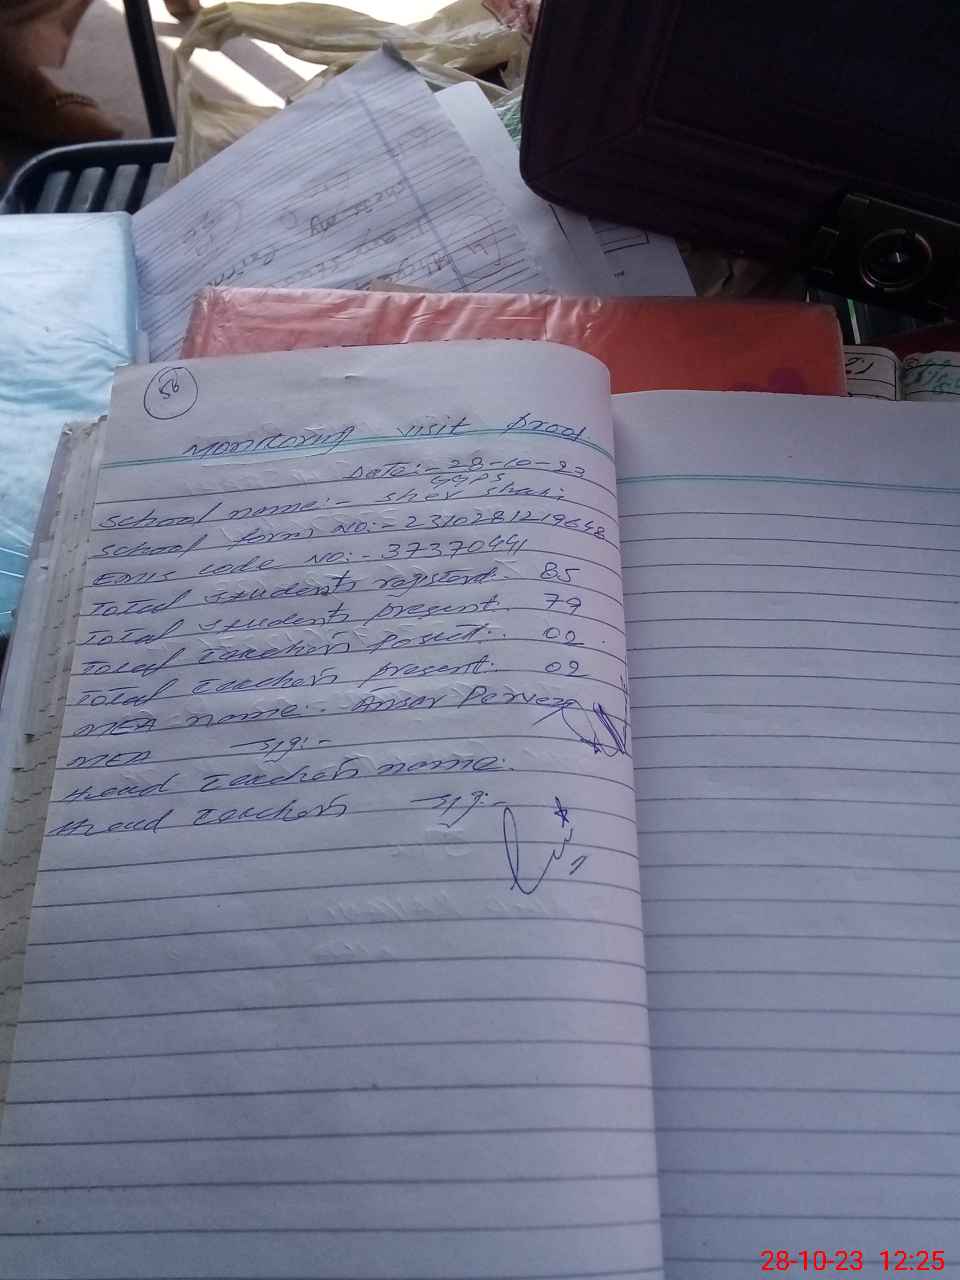 Monitoring visit proof.
Date:- 28-10-23
GGPS
School name:- Sher Shahi
School form No:- 2310281219648
EMIS code No:- 37370441
Total students registerd:- 85
Total students present:- 79
Total teachers posted:- 02.
Total teachers present:- 02
MEA name:- Ansar Pervez
MEA sig:-
Head teachers name:
Head teachers sig:-
28-10-23 12:25